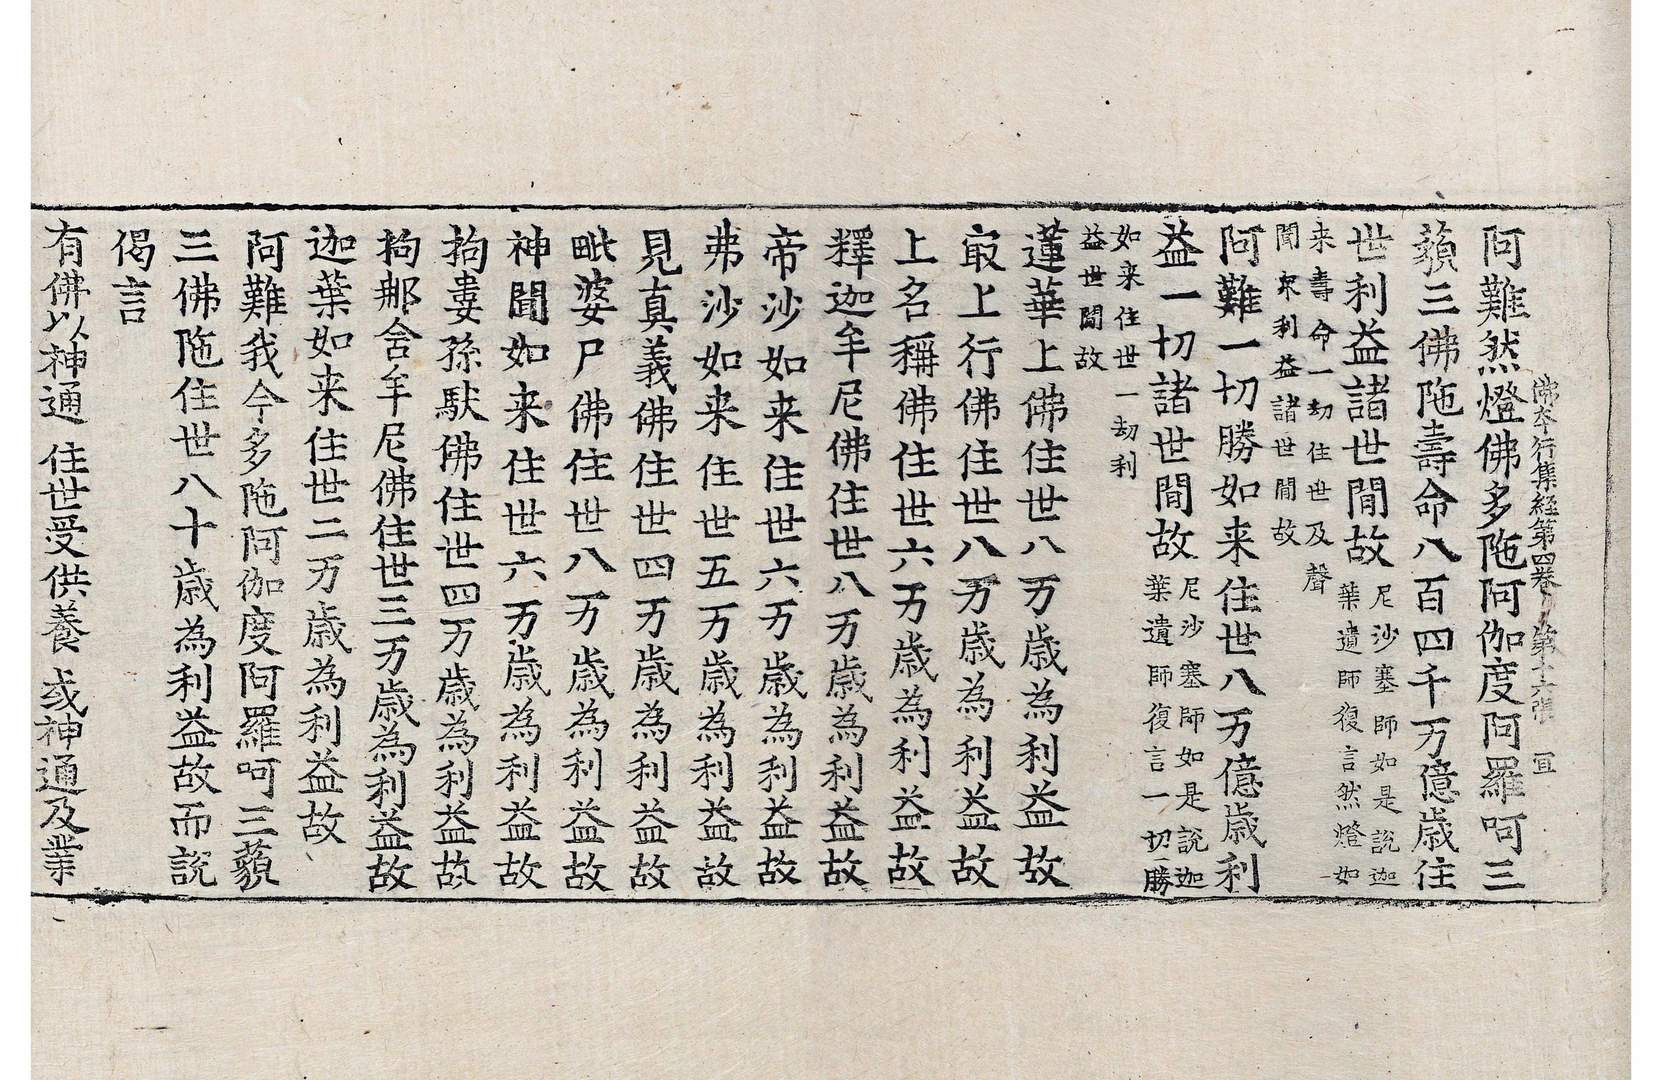 佛本行集経第四卷 第十六張 冝
阿難然燈佛多陁阿伽度阿羅呵三
藐三佛陁壽命八百四千万億歳住
世利益諸世間故尼沙塞師如是說迦
葉遺師復言然燈如
来壽命一劫住世及聲
聞衆利益諸世間故
阿難一切勝如来住世八万億歳利
益一切諸世間故尼沙塞師如是說迦
葉遺師復言一切勝
如来住世一劫利
益世間故
蓮華上佛住世八万歳為利益故
㝡上行佛住世八万歳為利益故
上名稱佛住世六万歳為利益故
釋迦牟尼佛住世八万歳為利益故
帝沙如来住世六万歳為利益故
弗沙如来住世五万歳為利益故
見真義佛住世四万歳為利益故
毗婆尸佛住世八万歳為利益故
神聞如来住世六万歳為利益故
拘婁孫馱佛住世四万歳為利益故
拘那舍牟尼佛住世三万歳為利益故
迦葉如来住世二万歳為利益故
阿難我今多陁阿伽度阿羅呵三藐
三佛陁住世八十歳為利益故而說
偈言
有佛以神通 住世受供養 或神通及業